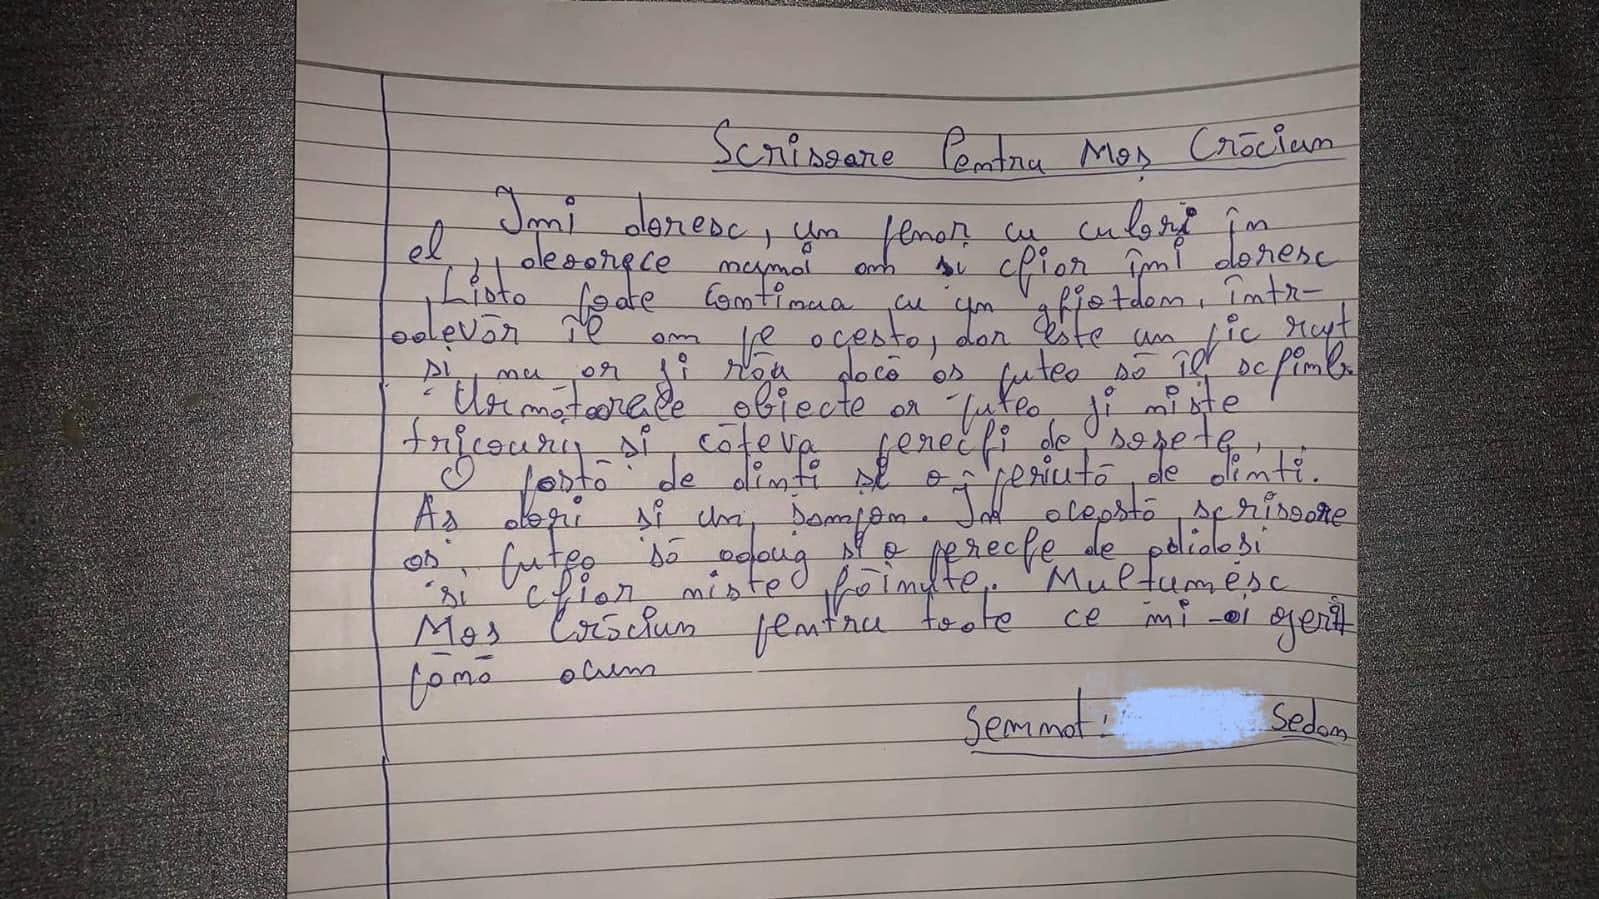 Scrisoare Pentru Moș Crăciun
Imi doresc, un penar cu culori în
el, deoarece numai am și chiar îmi doresc
Lista poate continua cu un ghiozdan, într-
adevăr îl am pe acesta, dar este un pic rupt
și nu ar fi rău dacă aș putea să îl schimb.
Următoarele obiecte ar putea fi niște
tricouri și câteva perechi de șosete,
O pastă de dinți și o periuță de dinti.
Aș dori și un șampon. In aceastā scrisoare
aș putea să adaug și o pereche de adidași
și chiar niște hăinuțe. Multumesc
Moș Crăciun pentru toate ce mi-ai oferit
pānā acum
Semnat: Sedam